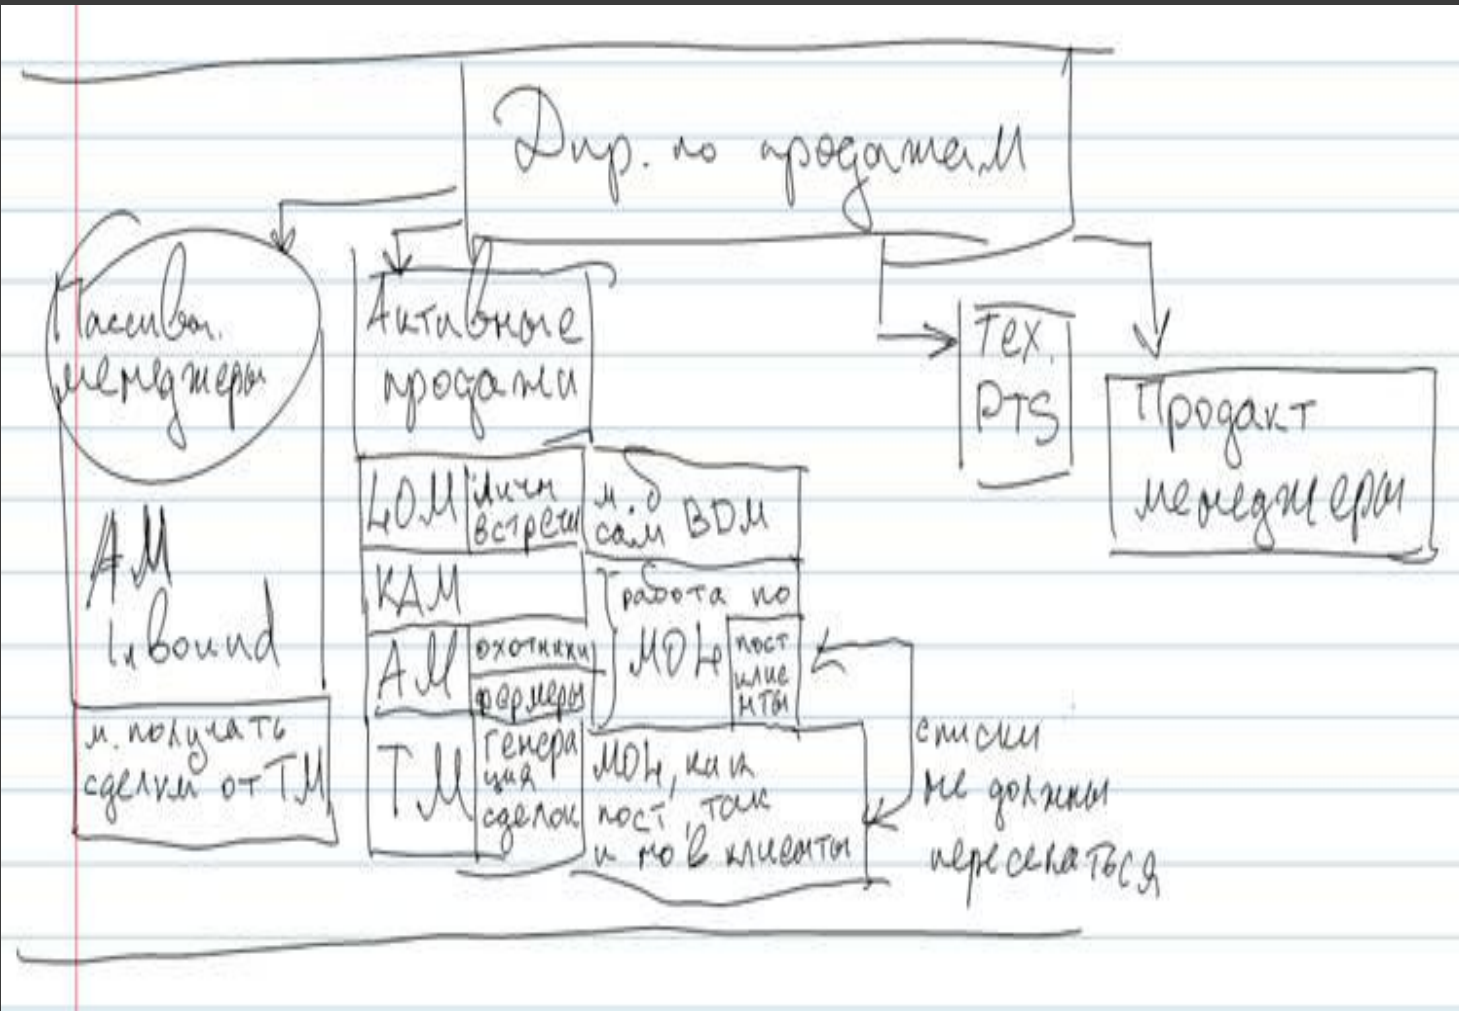 Дир. по продажам
Пассивн.
менеджеры
AM
Inbound
м. получать
сделки от ТМ
Активные
продажи
LOM
личн
встречи
м. б
сам BDM
KAM
AM
охотники
фермеры
работа по
MOL
пост
клие
нты
TM
генера
ция
сделок
MOL, как
пост, так
и нов клиенты
списки
не должны
пересекаться
Тех.
PTS
Продакт
менеджеры